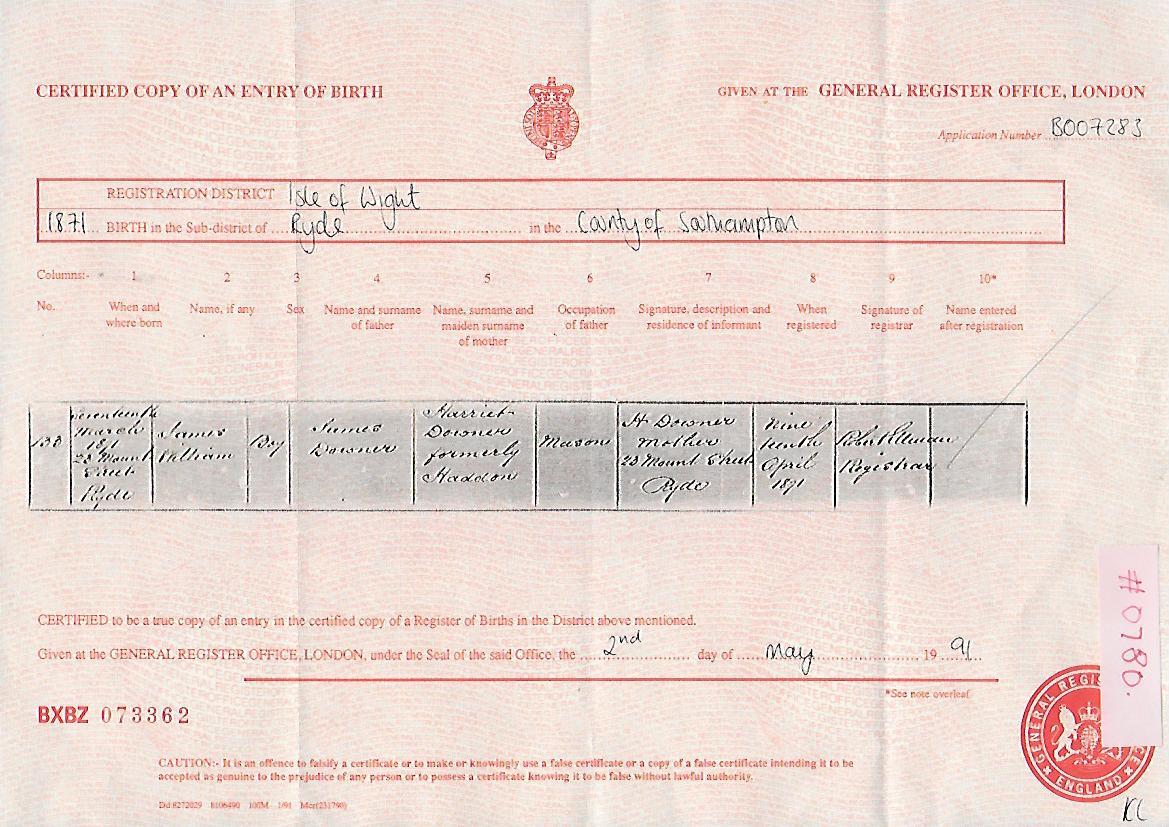 CERTIFIED COPY OF AN ENTRY OF BIRTH
GIVEN AT THE GENERAL REGISTER OFFICE, LONDON
Application Number B007283
REGISTRATION DISTRICT Isle of Wight
1871 BIRTH in the Sub-district of Ryde in the County of Southampton
Columns:- 1 2 3 4 5 6 7 8 9 10*
No.
When and
where born
Name, if any
Sex
Name and surname
of father
Name, surname and
maiden surname
of mother
Occupation
of father
Signature, description and
residence of informant
When
registered
Signature of
registrar
Name entered
after registration
138
Seventeenth
March
1871
23 Mount
Street
Ryde
James
William
Boy
James
Downer
Harriet
Downer
formerly
Haddon
Mason
H Downer
Mother
23 Mount Street
Ryde
Nine
teenth
April
1871
Registrar
CERTIFIED to be a true copy of an entry in the certified copy of a Register of Births in the District above mentioned.
Given at the GENERAL REGISTER OFFICE, LONDON, under the Seal of the said Office, the 2nd day of May 19 91
*See note overleaf
BXBZ 073362
CAUTION:- It is an offence to falsify a certificate or to make or knowingly use a false certificate or a copy of a false certificate intending it to be
accepted as genuine to the prejudice of any person or to possess a certificate knowing it to be false without lawful authority.
Dd 8272029 8106490 100M 1/91 Mcr(231790)
# 0780.
GENERAL REGIS
CE
ENGLAND